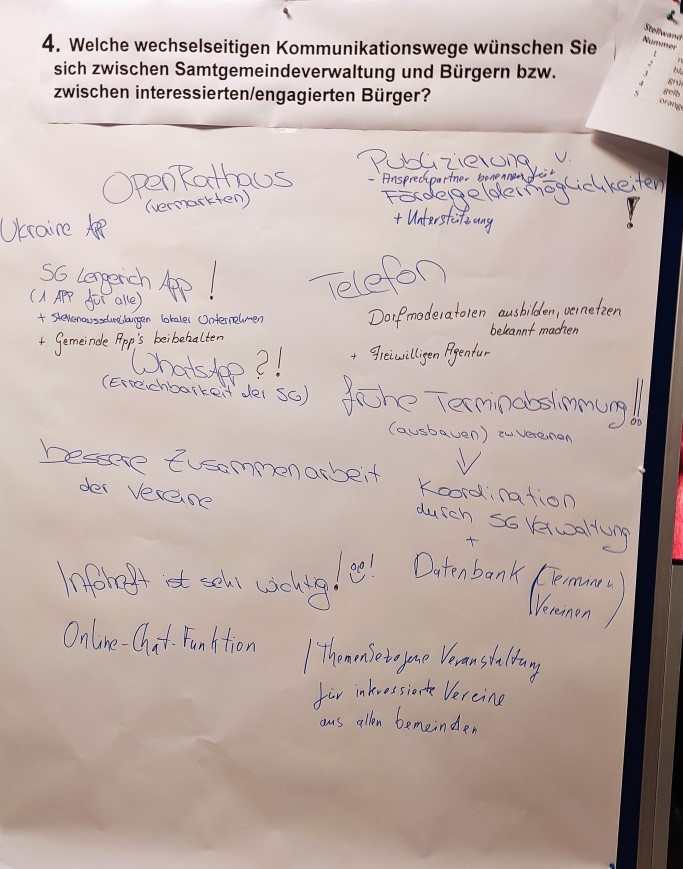 4. Welche wechselseitigen Kommunikationswege wünschen Sie
sich zwischen Samtgemeindeverwaltung und Bürgern bzw.
zwischen interessierten/engagierten Bürger?
Stellwand
Nummer
1
2
3
4
5
grün
gelb
orange
OpenRathaus
(vermarkten)
Ukraine App
Publizierung v.
- Ansprechpartner benennen für
Fördergeldermöglichkeiten
+ Unterstützung !
SG Lengerich App !
(1 APP für alle)
+ Stellenausschreibungen lokaler Unternehmen
+ Gemeinde App's beibehalten
WhatsApp ?!
(Erreichbarkeit der SG)
Telefon
Dorfmoderatoren ausbilden, vernetzen
bekannt machen
+ Freiwilligen Agentur
frühe Terminabstimmung!!
(ausbauen) zw Vereinen
Koordination
durch SG Verwaltung
+
Datenbank (Terminen
Vereinen)
bessere Zusammenarbeit
der Vereine
Infoheft ist sehr wichtig! !
Online-Chat-Funktion
/ Themenbezogene Veranstaltung
für interessierte Vereine
aus allen Gemeinden